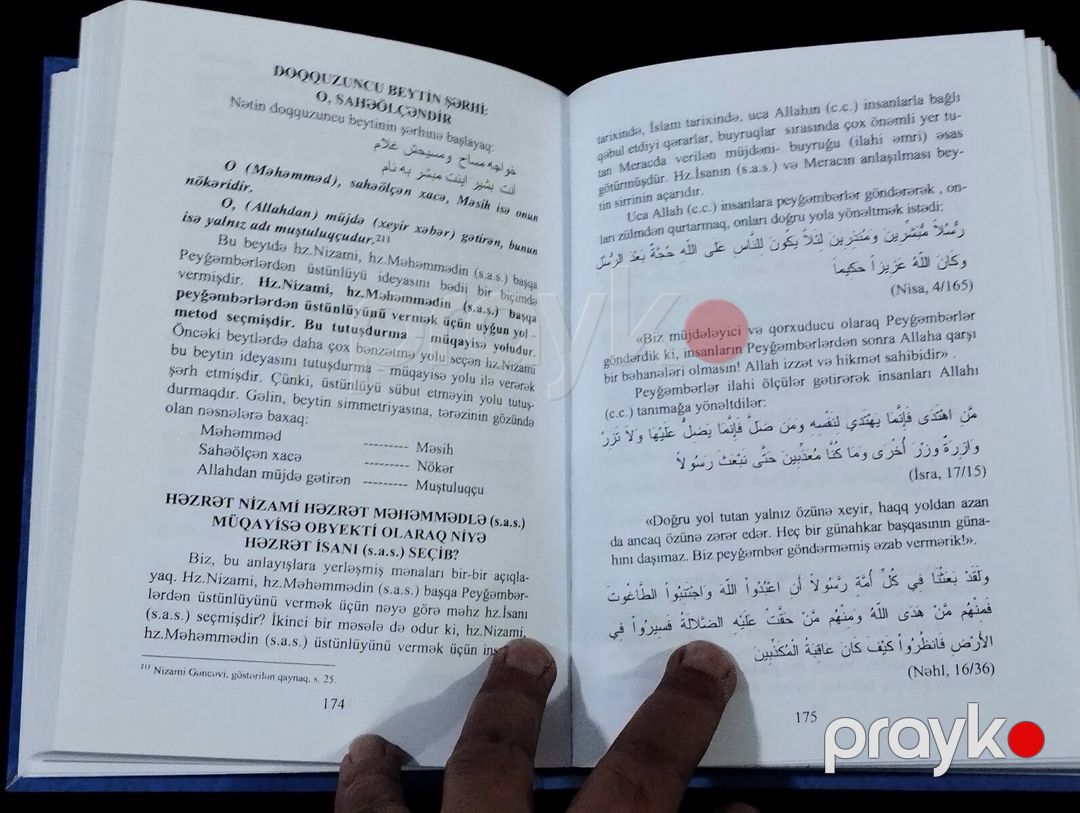 DOQQUZUNCU BEYTİN ŞƏRHİ:
O, SAHƏÖLÇƏNDİR
Nətin doqquzuncu beytinin şərhinə başlayaq:
خواجه مساح ومسیحش غلام
آنت بشیر اینت مبشر به نام
O (Məhəmməd), sahəölçən xacə, Məsih isə onun
nökəridir.
O, (Allahdan) müjdə (xeyir xəbər) gətirən, bunun
isə yalnız adı muştuluqçudur.²¹¹
Bu beytdə hz.Nizami, hz.Məhəmmədin (s.a.s.) başqa
Peyğəmbərlərdən üstünlüyü ideyasını bədii bir biçimdə
vermişdir. Hz.Nizami, hz.Məhəmmədin (s.a.s.) başqa
peyğəmbərlərdən üstünlüyünü vermək üçün uyğun yol -
metod seçmişdir. Bu tutuşdurma – müqayisə yoludur.
Öncəki beytlərdə daha çox bənzətmə yolu seçən hz.Nizami
bu beytin ideyasını tutuşdurma – müqayisə yolu ilə verərək
şərh etmişdir. Çünki, üstünlüyü sübut etməyin yolu tutuş-
durmaqdır. Gəlin, beytin simmetriyasına, tərəzinin gözündə
olan nəsnələrə baxaq:
Məhəmməd --------- Məsih
Sahəölçən xacə --------- Nökər
Allahdan müjdə gətirən --------- Muştuluqçu
HƏZRƏT NİZAMİ HƏZRƏT MƏHƏMMƏDLƏ (s.a.s.)
MÜQAYİSƏ OBYEKTİ OLARAQ NİYƏ
HƏZRƏT İSANI (s.a.s.) SEÇİB?
Biz, bu anlayışlara yerləşmiş mənaları bir-bir açıqla-
yaq. Hz.Nizami, hz.Məhəmmədin (s.a.s.) başqa Peyğəmbər-
lərdən üstünlüyünü vermək üçün nəyə görə məhz hz.İsanı
(s.a.s.) seçmişdir? İkinci bir məsələ də odur ki, hz.Nizami,
hz.Məhəmmədin (s.a.s.) üstünlüyünü vermək üçün
²¹¹ Nizami Gəncəvi, göstərilən qaynaq, s. 25.
174
tarixində, İslam tarixində, uca Allahın (c.c.) insanlarla bağlı
qəbul etdiyi qərarlar, buyruqlar sırasında çox önəmli yer tu-
tan Meracda verilən müjdəni- buyruğu (ilahi əmri) əsas
götürmüşdür. Hz.İsanın (s.a.s.) və Meracın anlaşılması bey-
tin sirrinin açarıdır.
Uca Allah (c.c.) insanlara peyğəmbərlər göndərərək , on-
ları zülmdən qurtarmaq, onları doğru yola yönəltmək istədi:
رُّسُلاً مُّبَشِّرِينَ وَمُنذِرِينَ لِئَلاَّ يَكُونَ لِلنَّاسِ عَلَى اللّهِ حُجَّةٌ بَعْدَ الرُّسُلِ
وَكَانَ اللّهُ عَزِيزاً حَكِيماً
(Nisa, 4/165)
«Biz müjdələyici və qorxuducu olaraq Peyğəmbərlər
göndərdik ki, insanların Peyğəmbərlərdən sonra Allaha qarşı
bir bəhanələri olmasın! Allah izzət və hikmət sahibidir» .
Peyğəmbərlər ilahi ölçülər gətirərək insanları Allahı
(c.c.) tanımağa yönəltdilər:
مَّنِ اهْتَدَى فَإِنَّمَا يَهْتَدِي لِنَفْسِهِ وَمَن ضَلَّ فَإِنَّمَا يَضِلُّ عَلَيْهَا وَلاَ تَزِرُ
وَازِرَةٌ وِزْرَ أُخْرَى وَمَا كُنَّا مُعَذِّبِينَ حَتَّى نَبْعَثَ رَسُولاً
(İsra, 17/15)
«Doğru yol tutan yalnız özünə xeyir, haqq yoldan azan
da ancaq özünə zərər edər. Heç bir günahkar başqasının güna-
hını daşımaz. Biz peyğəmbər göndərməmiş əzab vermərik!».
وَلَقَدْ بَعَثْنَا فِي كُلِّ أُمَّةٍ رَّسُولاً أَنِ اعْبُدُواْ اللّهَ وَاجْتَنِبُواْ الطَّاغُوتَ
فَمِنْهُم مَّنْ هَدَى اللّهُ وَمِنْهُم مَّنْ حَقَّتْ عَلَيْهِ الضَّلالَةُ فَسِيرُواْ فِي
الأَرْضِ فَانظُرُواْ كَيْفَ كَانَ عَاقِبَةُ الْمُكَذِّبِينَ
(Nəhl, 16/36)
175
prayk
prayk